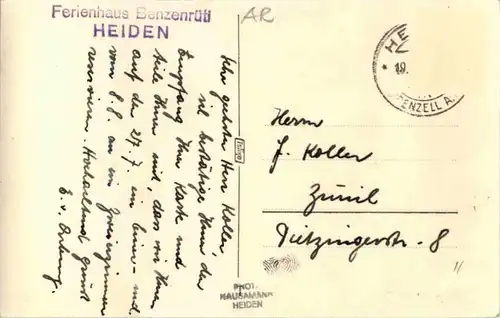 Ferienhaus Benzenrüti
HEIDEN
AR
Sehr geehrter Herr Koller,
ich bestätige Ihnen den
Empfang Ihrer Karte und
teile Ihnen mit, dass wir Ihnen
auf den 27.7. ein einer- und
vom 8.8. an ein Zweierzimmer
reservieren. Hochachtend grüsst
E. v.
HE
19.
PENZELL A.
Herrn
J. Koller
Zürich
Dietzingerstr. 8
PHOT.
HAUSAMANN
HEIDEN